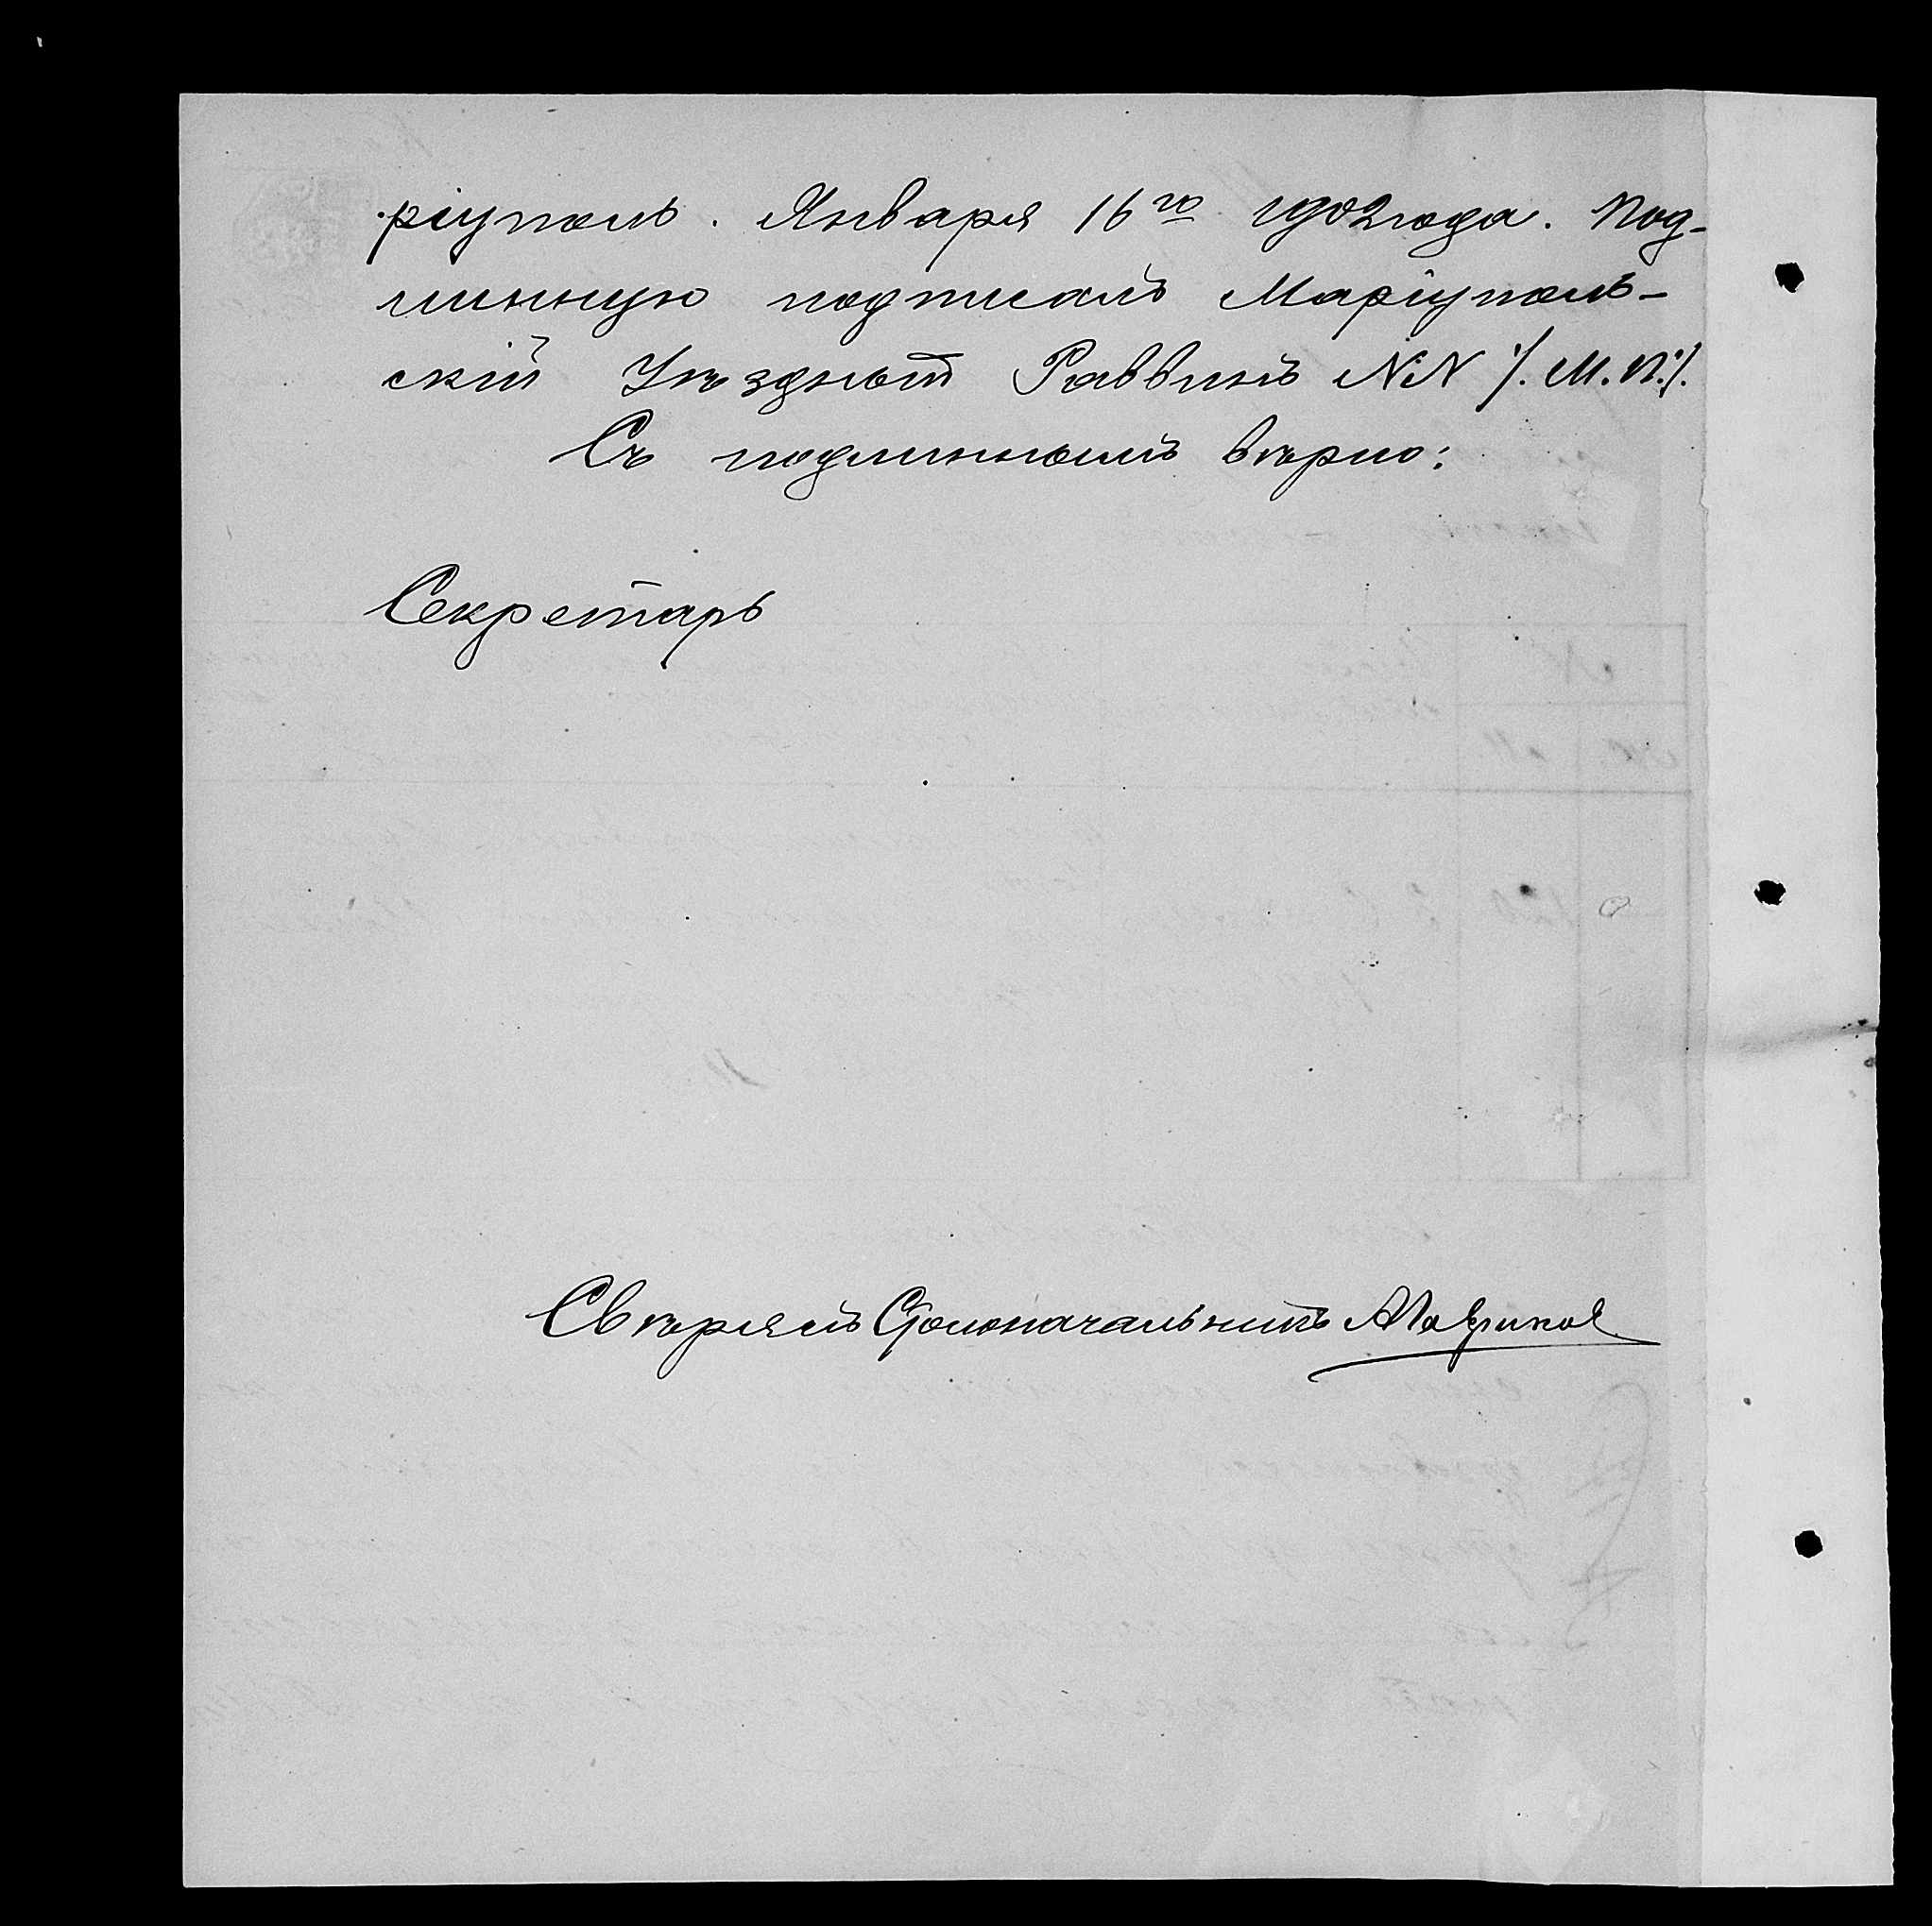 ріуполь. Января 16го 1902 года. Под-
линную подписалъ Маріуполь-
скій Уѣздный Раввинъ NN /. М. П./.
Съ подлиннымъ вѣрно:
Секретарь
Свѣрялъ Столоначальникъ